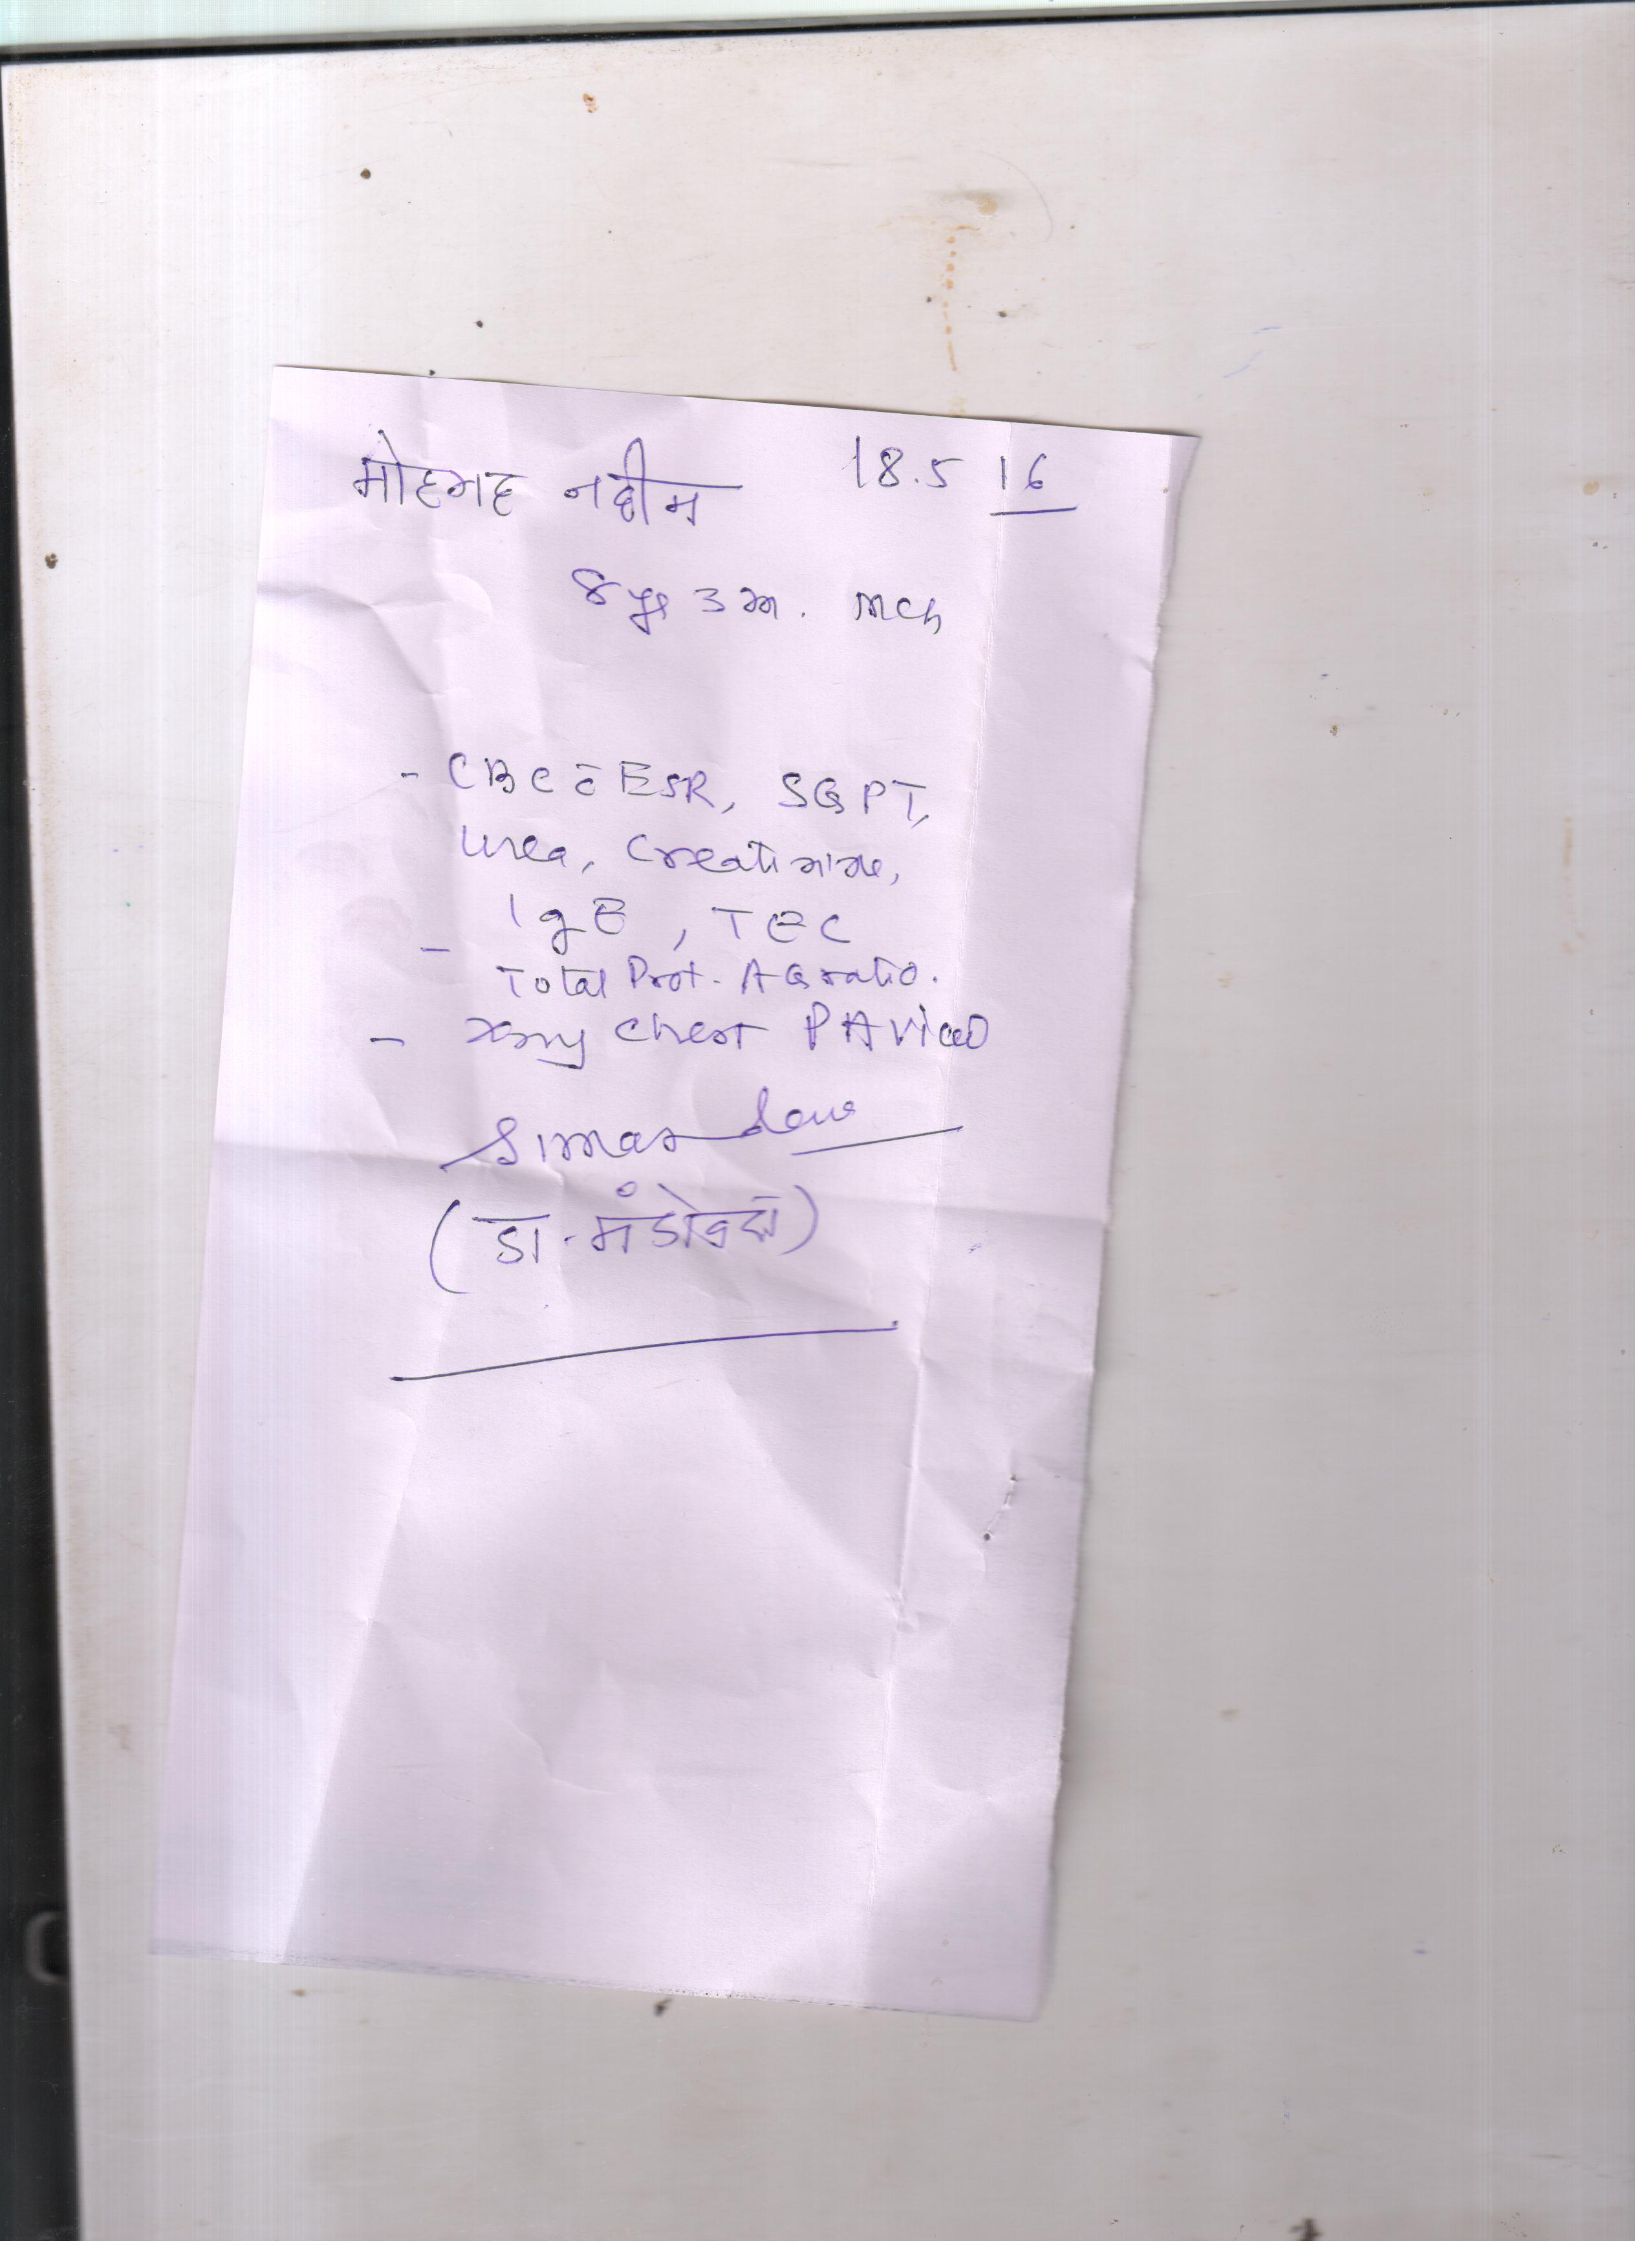 मोहमद नदीम 18.5 16
8 yr 3 m. mch
- CBC c̄ ESR, SGPT,
Urea, Creatinine,
- IgE, TEC
Total Prot. AG ratio.
- Xray Chest PA View
(डा. मंडोवरा)